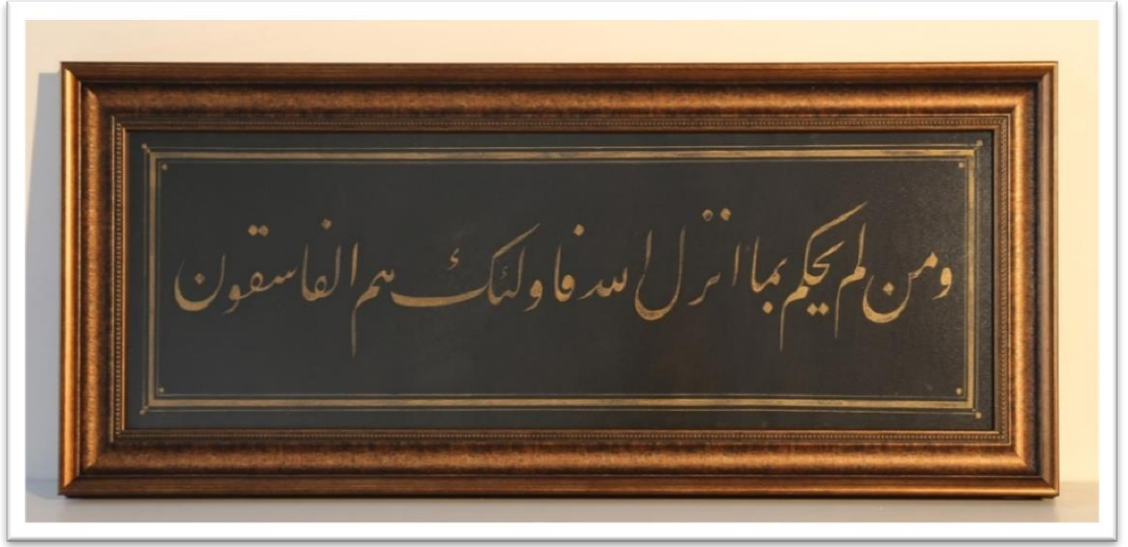 ومن لم يحكم بما انزل الله فاولئك هم الفاسقون